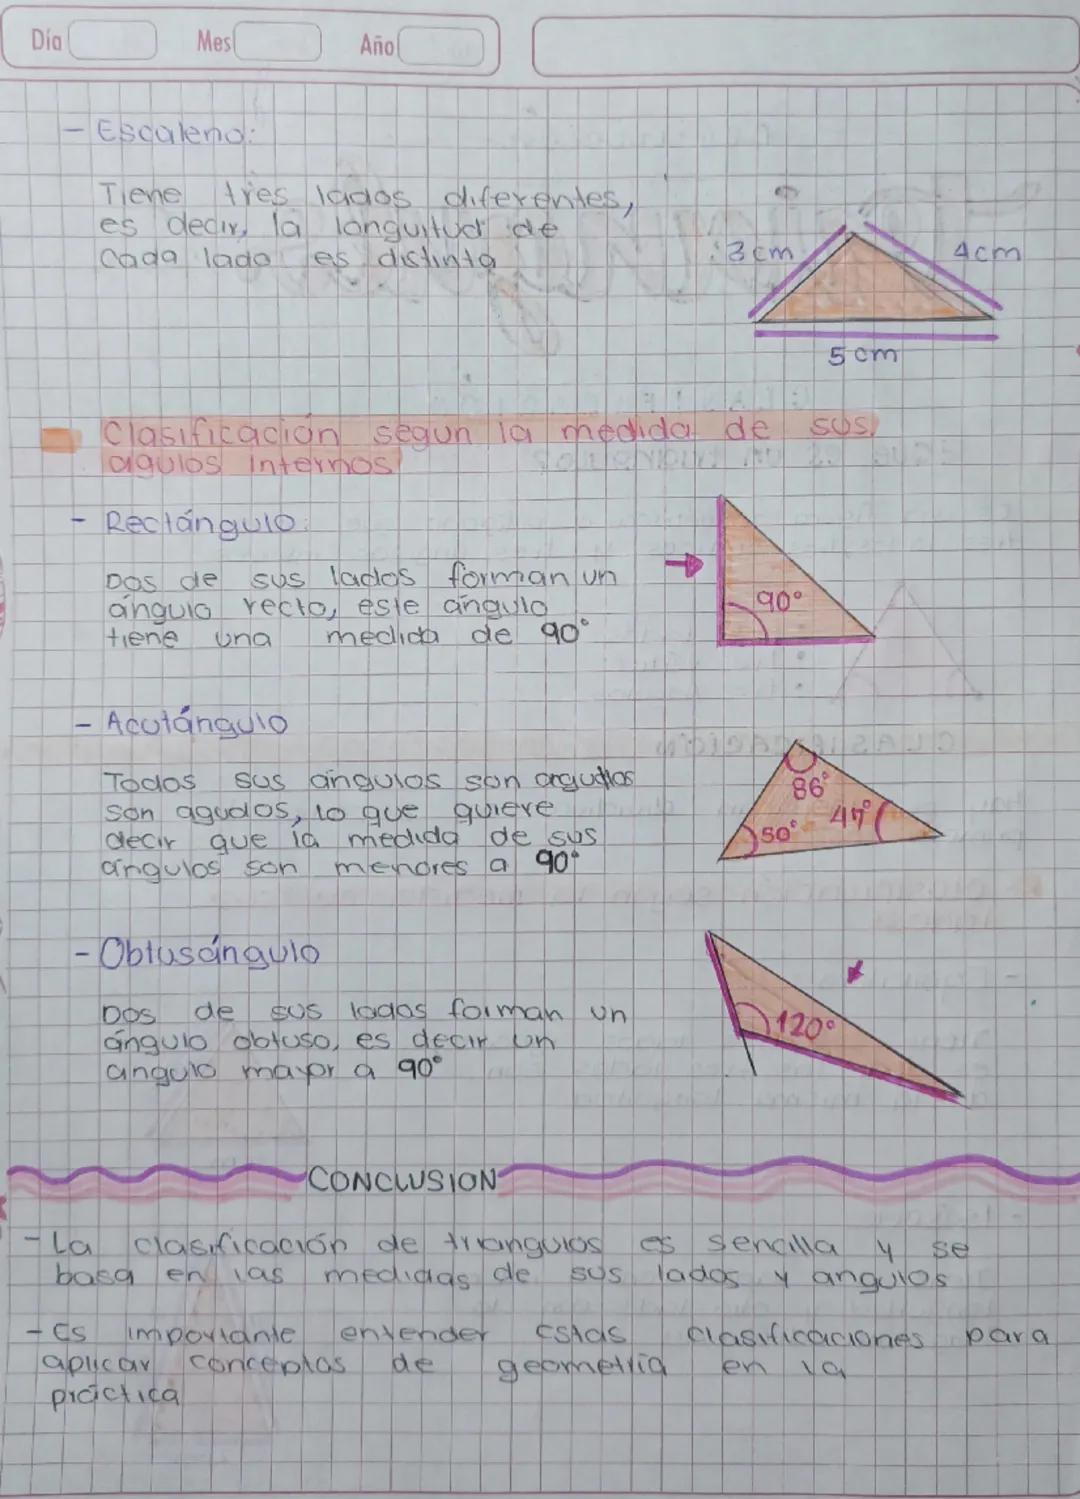 Día Mes Año
- Escaleno:
Tiene tres lados diferentes,
es decir, la longuitud de
cada lado es distinta
3 cm 4 cm
5 cm
Clasificación segun la medida de sus
agulos internos
- Rectángulo:
Dos de sus lados forman un
ángulo recto, este ángulo
tiene una medida de 90°
90°
- Acutángulo
Todos sus ángulos son
son agudos, lo que quiere
decir que la medida de sus
ángulos son menores a 90°
86°
50°
- Obtusángulo
Dos de sus lados forman un
ángulo obtuso, es decir un
angulo mayor a 90°
120°
CONCLUSION
- La clasificación de triangulos es sencilla y se
basa en las medidas de sus lados y angulos
- Es importante entender estas clasificaciones para
aplicar conceptos de geometría en la
práctica